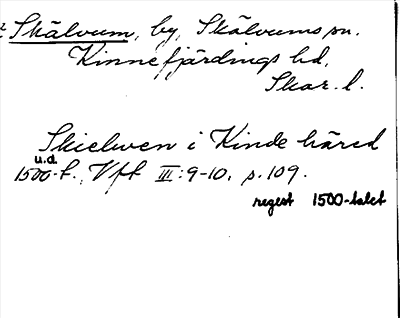 Skälvum, by, Skälvums sn.
Kinnefjärdings hd,
Skar. l.
Skielwen i Kinde häred
u.å.
1500-t., Vft III:9-10, s. 109.
regest 1500-talet